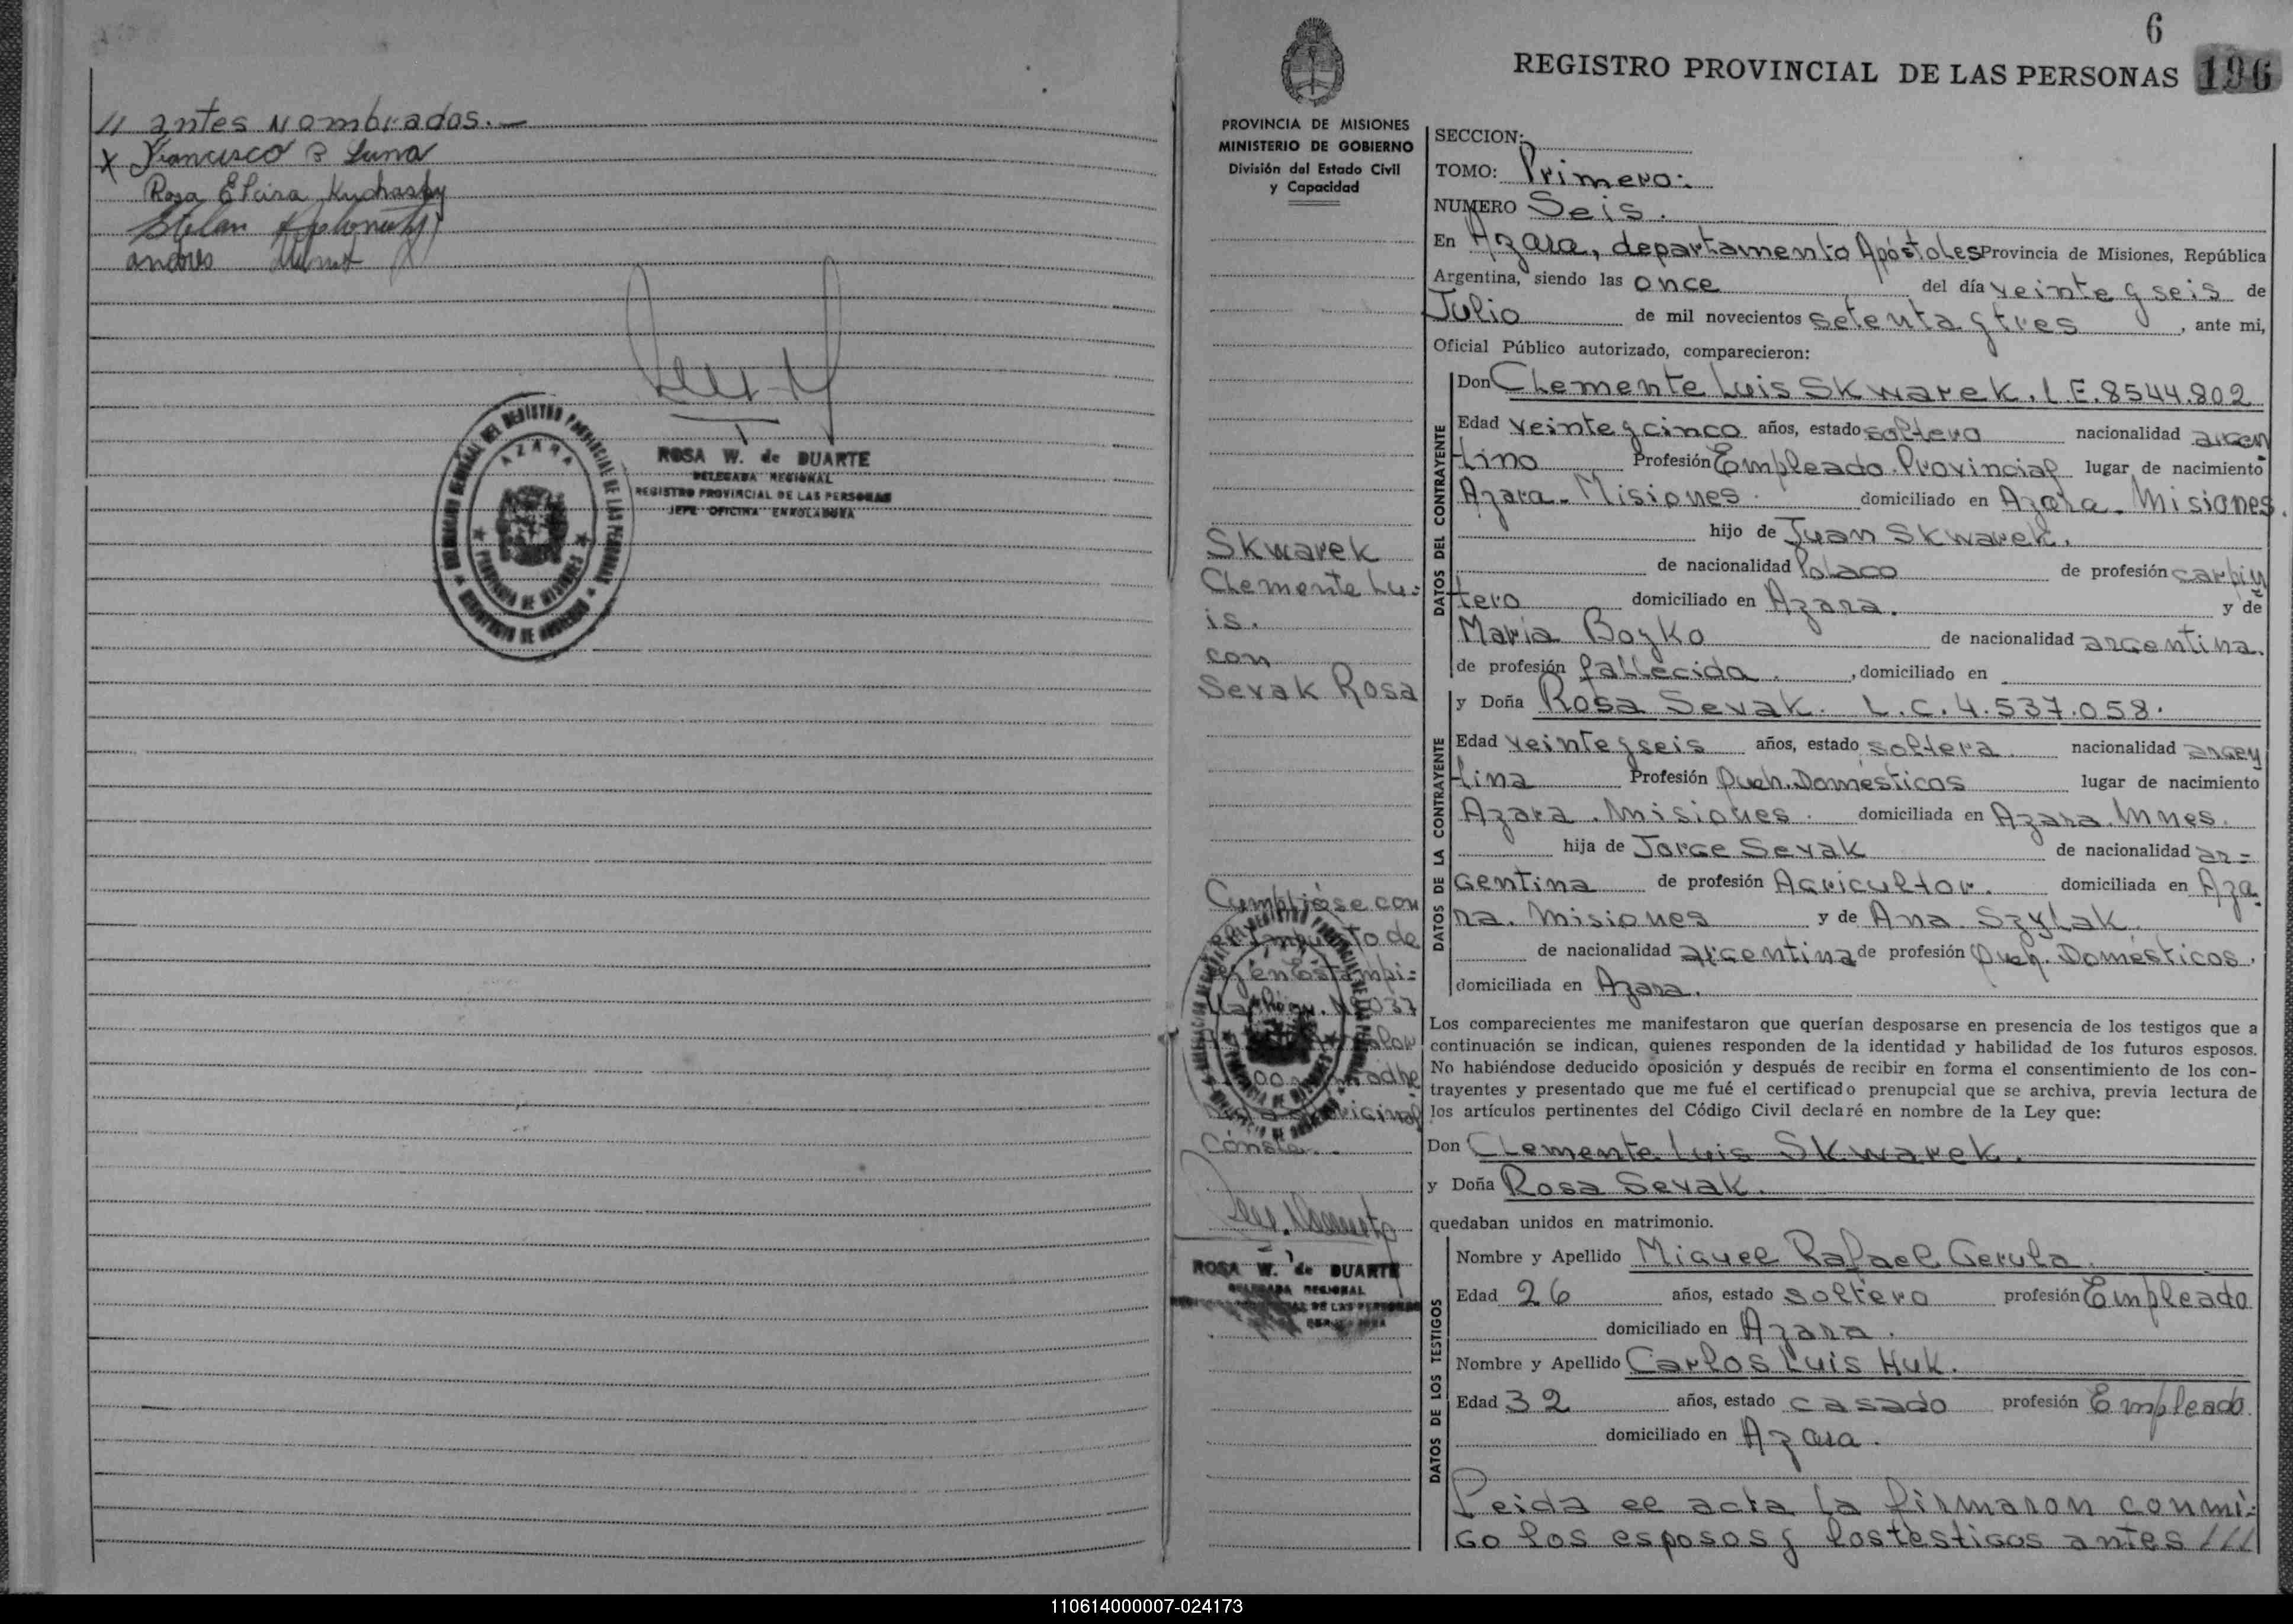 // antes Nombrados.—
X Francisco B Luna
Rosa Elcira Kucharsky
Andrés
ROSA W. de DUARTE
DELEGADA REGIONAL
REGISTRO PROVINCIAL DE LAS PERSONAS
JEFE OFICINA ENROLADORA
AZARA
PROVINCIA DE MISIONES
6
REGISTRO PROVINCIAL DE LAS PERSONAS 196
PROVINCIA DE MISIONES
MINISTERIO DE GOBIERNO
División del Estado Civil
y Capacidad
Skwarek
Clemente Lu-
is.
con
Sevak Rosa
Cumplióse con
el Impuesto de
en Estampi-
Conste.
ROSA W. de DUARTE
DELEGADA REGIONAL
SECCION:
TOMO: Primero.
NUMERO Seis.
En Azara, departamento Apóstoles Provincia de Misiones, República
Argentina, siendo las once del día veinte y seis de
Julio de mil novecientos setenta y tres, ante mi,
Oficial Público autorizado, comparecieron:
DATOS DEL CONTRAYENTE
Don Clemente Luis Skwarek. L.E. 8544.802
Edad veinte y cinco años, estado soltero nacionalidad argen
tino Profesión Empleado Provincial lugar de nacimiento
Azara - Misiones. domiciliado en Azara. Misiones.
hijo de Juan Skwarek.
de nacionalidad Polaco de profesión carpin
tero domiciliado en Azara. y de
María Boyko de nacionalidad argentina.
de profesión fallecida. , domiciliado en
DATOS DE LA CONTRAYENTE
y Doña Rosa Sevak. L.C. 4.537.058.
Edad veinte y seis años, estado soltera. nacionalidad argen
tina Profesión Queh. Domésticos lugar de nacimiento
Azara. Misiones. domiciliada en Azara. Mnes.
hija de Jorge Sevak de nacionalidad ar-
gentina de profesión Agricultor. domiciliada en Aza
ra. Misiones y de Ana Szylak.
de nacionalidad argentina de profesión Queh. Domésticos.
domiciliada en Azara.
Los comparecientes me manifestaron que querían desposarse en presencia de los testigos que a
continuación se indican, quienes responden de la identidad y habilidad de los futuros esposos.
No habiéndose deducido oposición y después de recibir en forma el consentimiento de los con-
trayentes y presentado que me fué el certificado prenupcial que se archiva, previa lectura de
los artículos pertinentes del Código Civil declaré en nombre de la Ley que:
Don Clemente Luis Skwarek.
y Doña Rosa Sevak.
quedaban unidos en matrimonio.
DATOS DE LOS TESTIGOS
Nombre y Apellido Miguel Rafael Gerula.
Edad 26 años, estado soltero profesión Empleado
domiciliado en Azara.
Nombre y Apellido Carlos Luis Huk.
Edad 32 años, estado casado profesión Empleado.
domiciliado en Azara.
Leida el acta la firmaron conmi-
go los esposos y los testigos antes ///
110614000007-024173